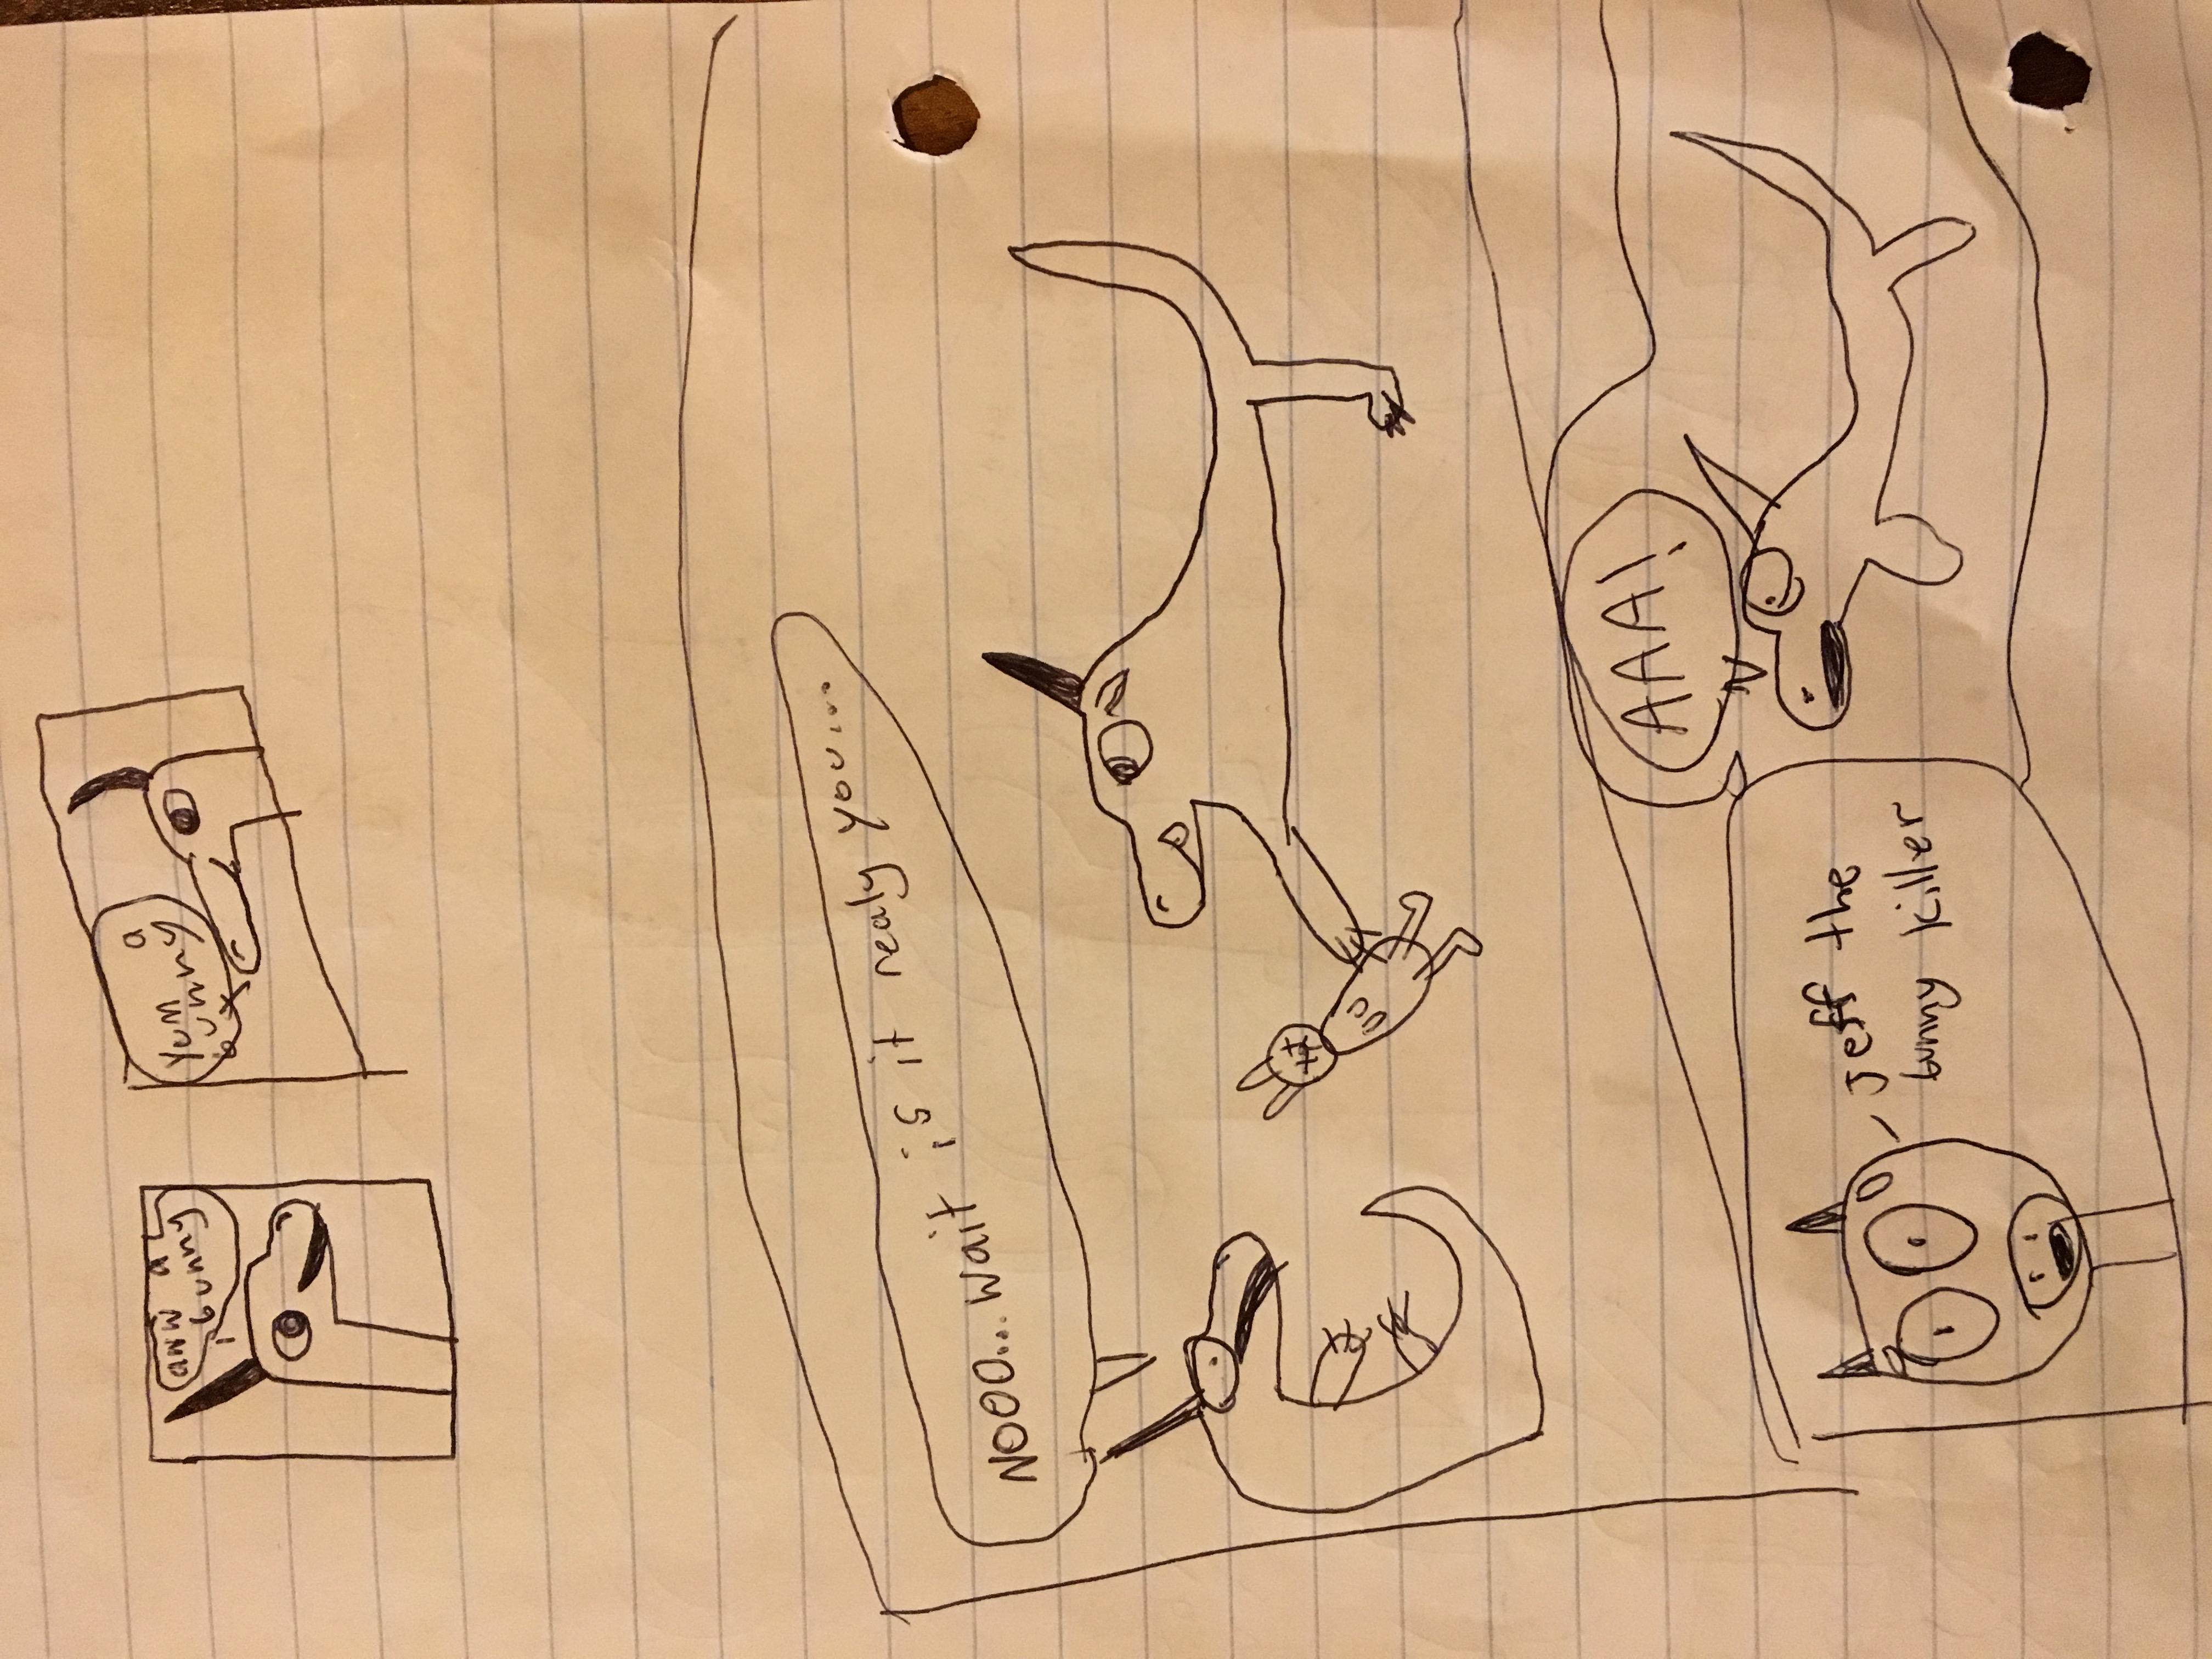 aww a
bunny
yum a
bunny
NOOO... wait is it realy you...
AAA!
Jeff the
bunny killer